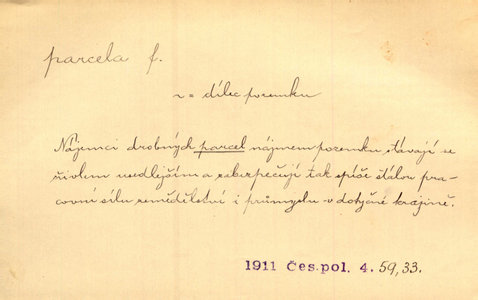 parcela f.
~ = dílec pozemku
Nájemci drobných parcel nájmem pozemku stávají se
živlem usedlejším a zabezpečují tak spíše stálou pra-
covní sílu zemědělství i průmyslu v dotyčné krajině.
1911 Čes. pol. 4. 59, 33.